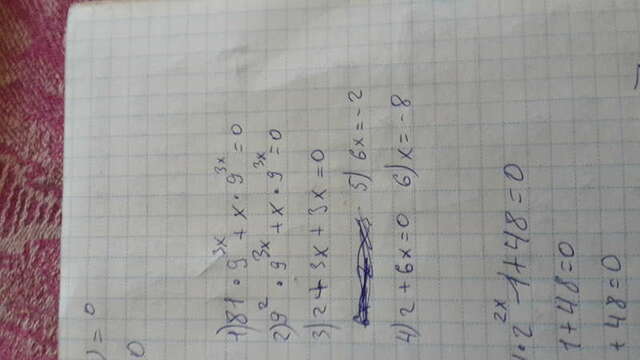 ) = 0
0
1) 81 · 9^3x + x · 9^3x = 0
2) 9^2 · 9^3x + x · 9^3x = 0
3) 2 + 3x + 3x = 0
5) 6x = -2
4) 2 + 6x = 0 6) x = -8
· 2^2x - 1 + 48 = 0
1 + 48 = 0
+ 48 = 0